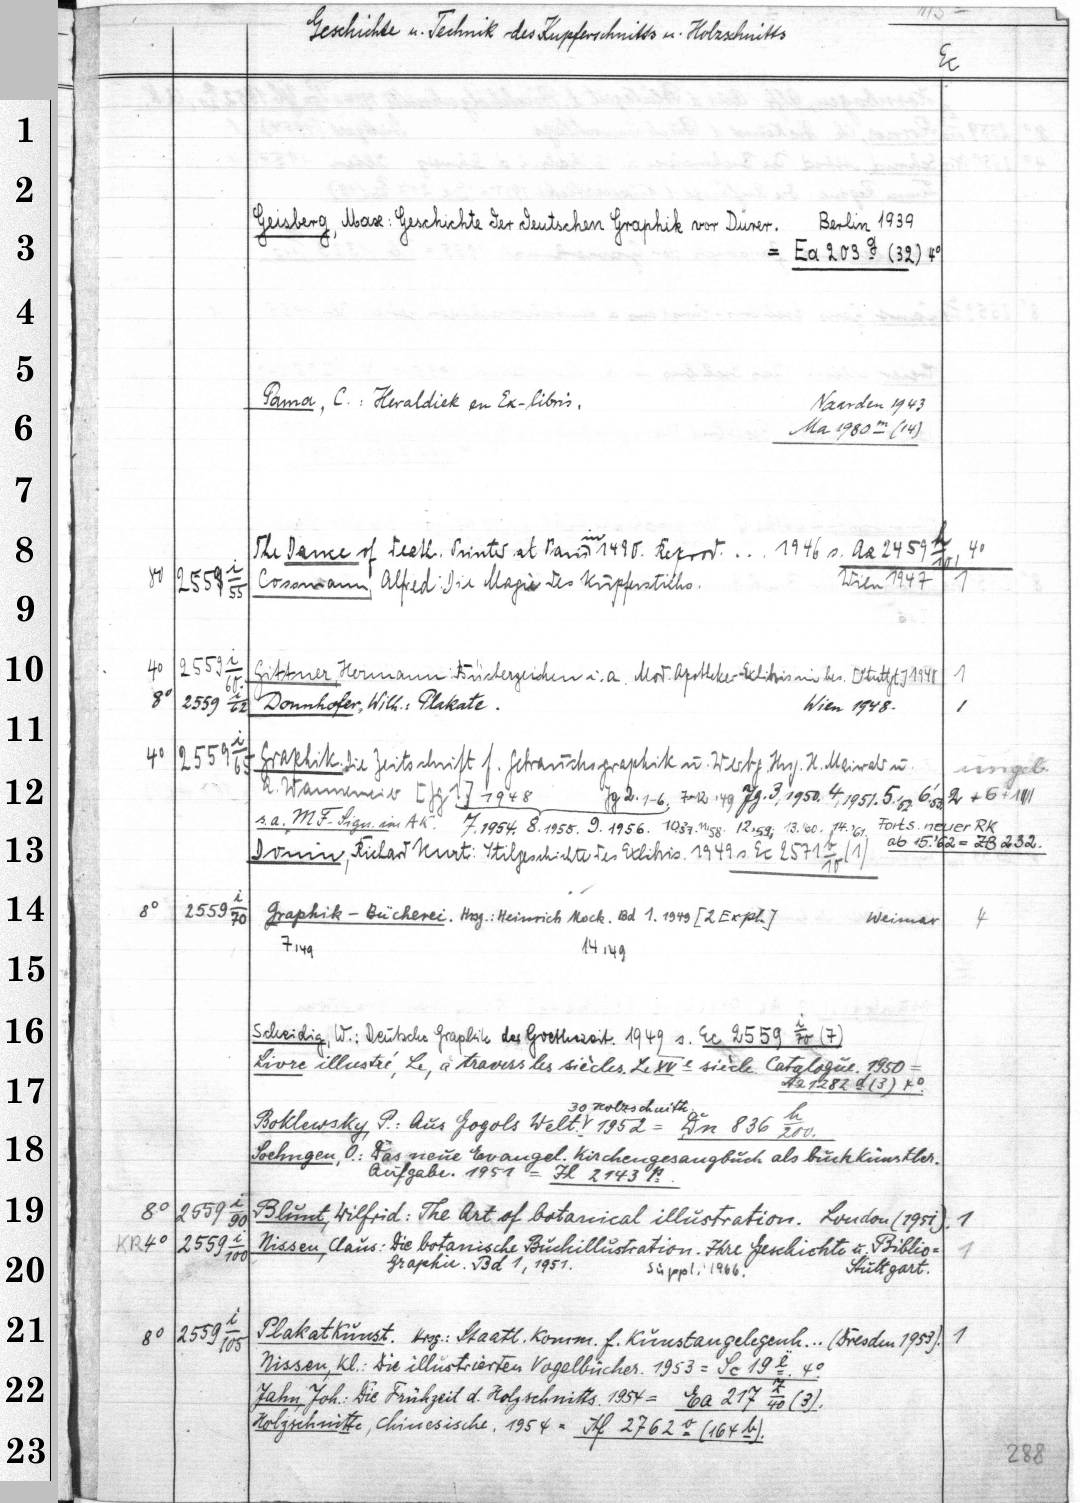 Geschichte u. Technik des Kupferschnitts u. Holzschnitts
Ec
1
2
Geisberg, Max: Geschichte der deutschen Graphik vor Dürer. Berlin 1939
3
= Ea 203 g (32) 4°
4
5
Pama, C.: Heraldiek en Ex-libris. Naarden 1943
6
Ma 1980 m (14)
7
8
The Dance of Death. Printed at Paris in 1490. Reprod. ... 1946 s. Aa 2459 h/10, 4°
8° 2559 i/55 Cossmann, Alfred: Die Magie des Kupferstichs. Wien 1947 1
9
10
4° 2559 i/60. Gittner, Hermann: Bücherzeichen i. a. Mod. Apotheke-Exlibris im bes. [Stuttgt] 1948 1
8° 2559 i/62 Donnhofer, Wilh.: Plakate. Wien 1948. 1
11
4° 2559 i/65 Graphik. Die Zeitschrift f. Gebrauchsgraphik u. Werbg. Hrsg. H. Maiwald u. ungeb.
12
[Jg 1.] 1948 Jg 2. 1-6, 7-12 '49 Jg. 3, 1950. 4, 1951. 5, '52 6, '53 2 + 6 + 1
s.a. MF-Sign. im AK. 7. 1954. 8. 1955. 9. 1956. 12, 59, 13. '60. 14. '61. Forts. neuer RK
13
ab 15. '62 = ZB 232.
Donin, Richard Kurt: Stilgeschichte des Exlibris. 1949 s. Ec 2571 v/10 (1)
14
8° 2559 i/70 Graphik - Bücherei. Hrsg.: Heinrich Mock. Bd 1. 1949 [2 Expl.] Weimar 4
7, 49 14, 49
15
16
Scheidig, W.: Deutsche Graphik der Goethezeit. 1949 s. Ec 2559 i/70 (7)
Livre illustré, Le, à travers les siècles. Le XVe siècle Catalogue. 1950 =
17
Aa 1282 d (3) 4°.
30 Holzschnitte
Boklewsky, P.: Aus Gogols Welt. 1952 = Dn 836 h/200.
18
Soehngen, O.: Das neue Evangel. Kirchengesangbuch als buchkünstler.
Aufgabe. 1951 = Hl 2143 p.
19
8° 2559 i/90 Blunt, Wilfrid: The Art of botanical illustration. London (1951). 1
KR 4° 2559 i/100 Nissen, Claus: Die botanische Buchillustration. Ihre Geschichte u. Biblio= 1
20
graphie. Bd 1, 1951. Suppl. 1966. Stuttgart.
21
8° 2559 i/105 Plakatkunst. Hrsg.: Staatl. Komm. f. Kunstangelegenh... (Dresden 1953). 1
Nissen, Kl.: Die illustrierten Vogelbücher. 1953 = Sc 19 l. 4°
22
Jahn, Joh.: Die Frühzeit d. Holzschnitts. 1954 = Ea 217 z/40 (3).
Holzschnitte, Chinesische. 1954 = Kf 2762 v (164 b).
23
288